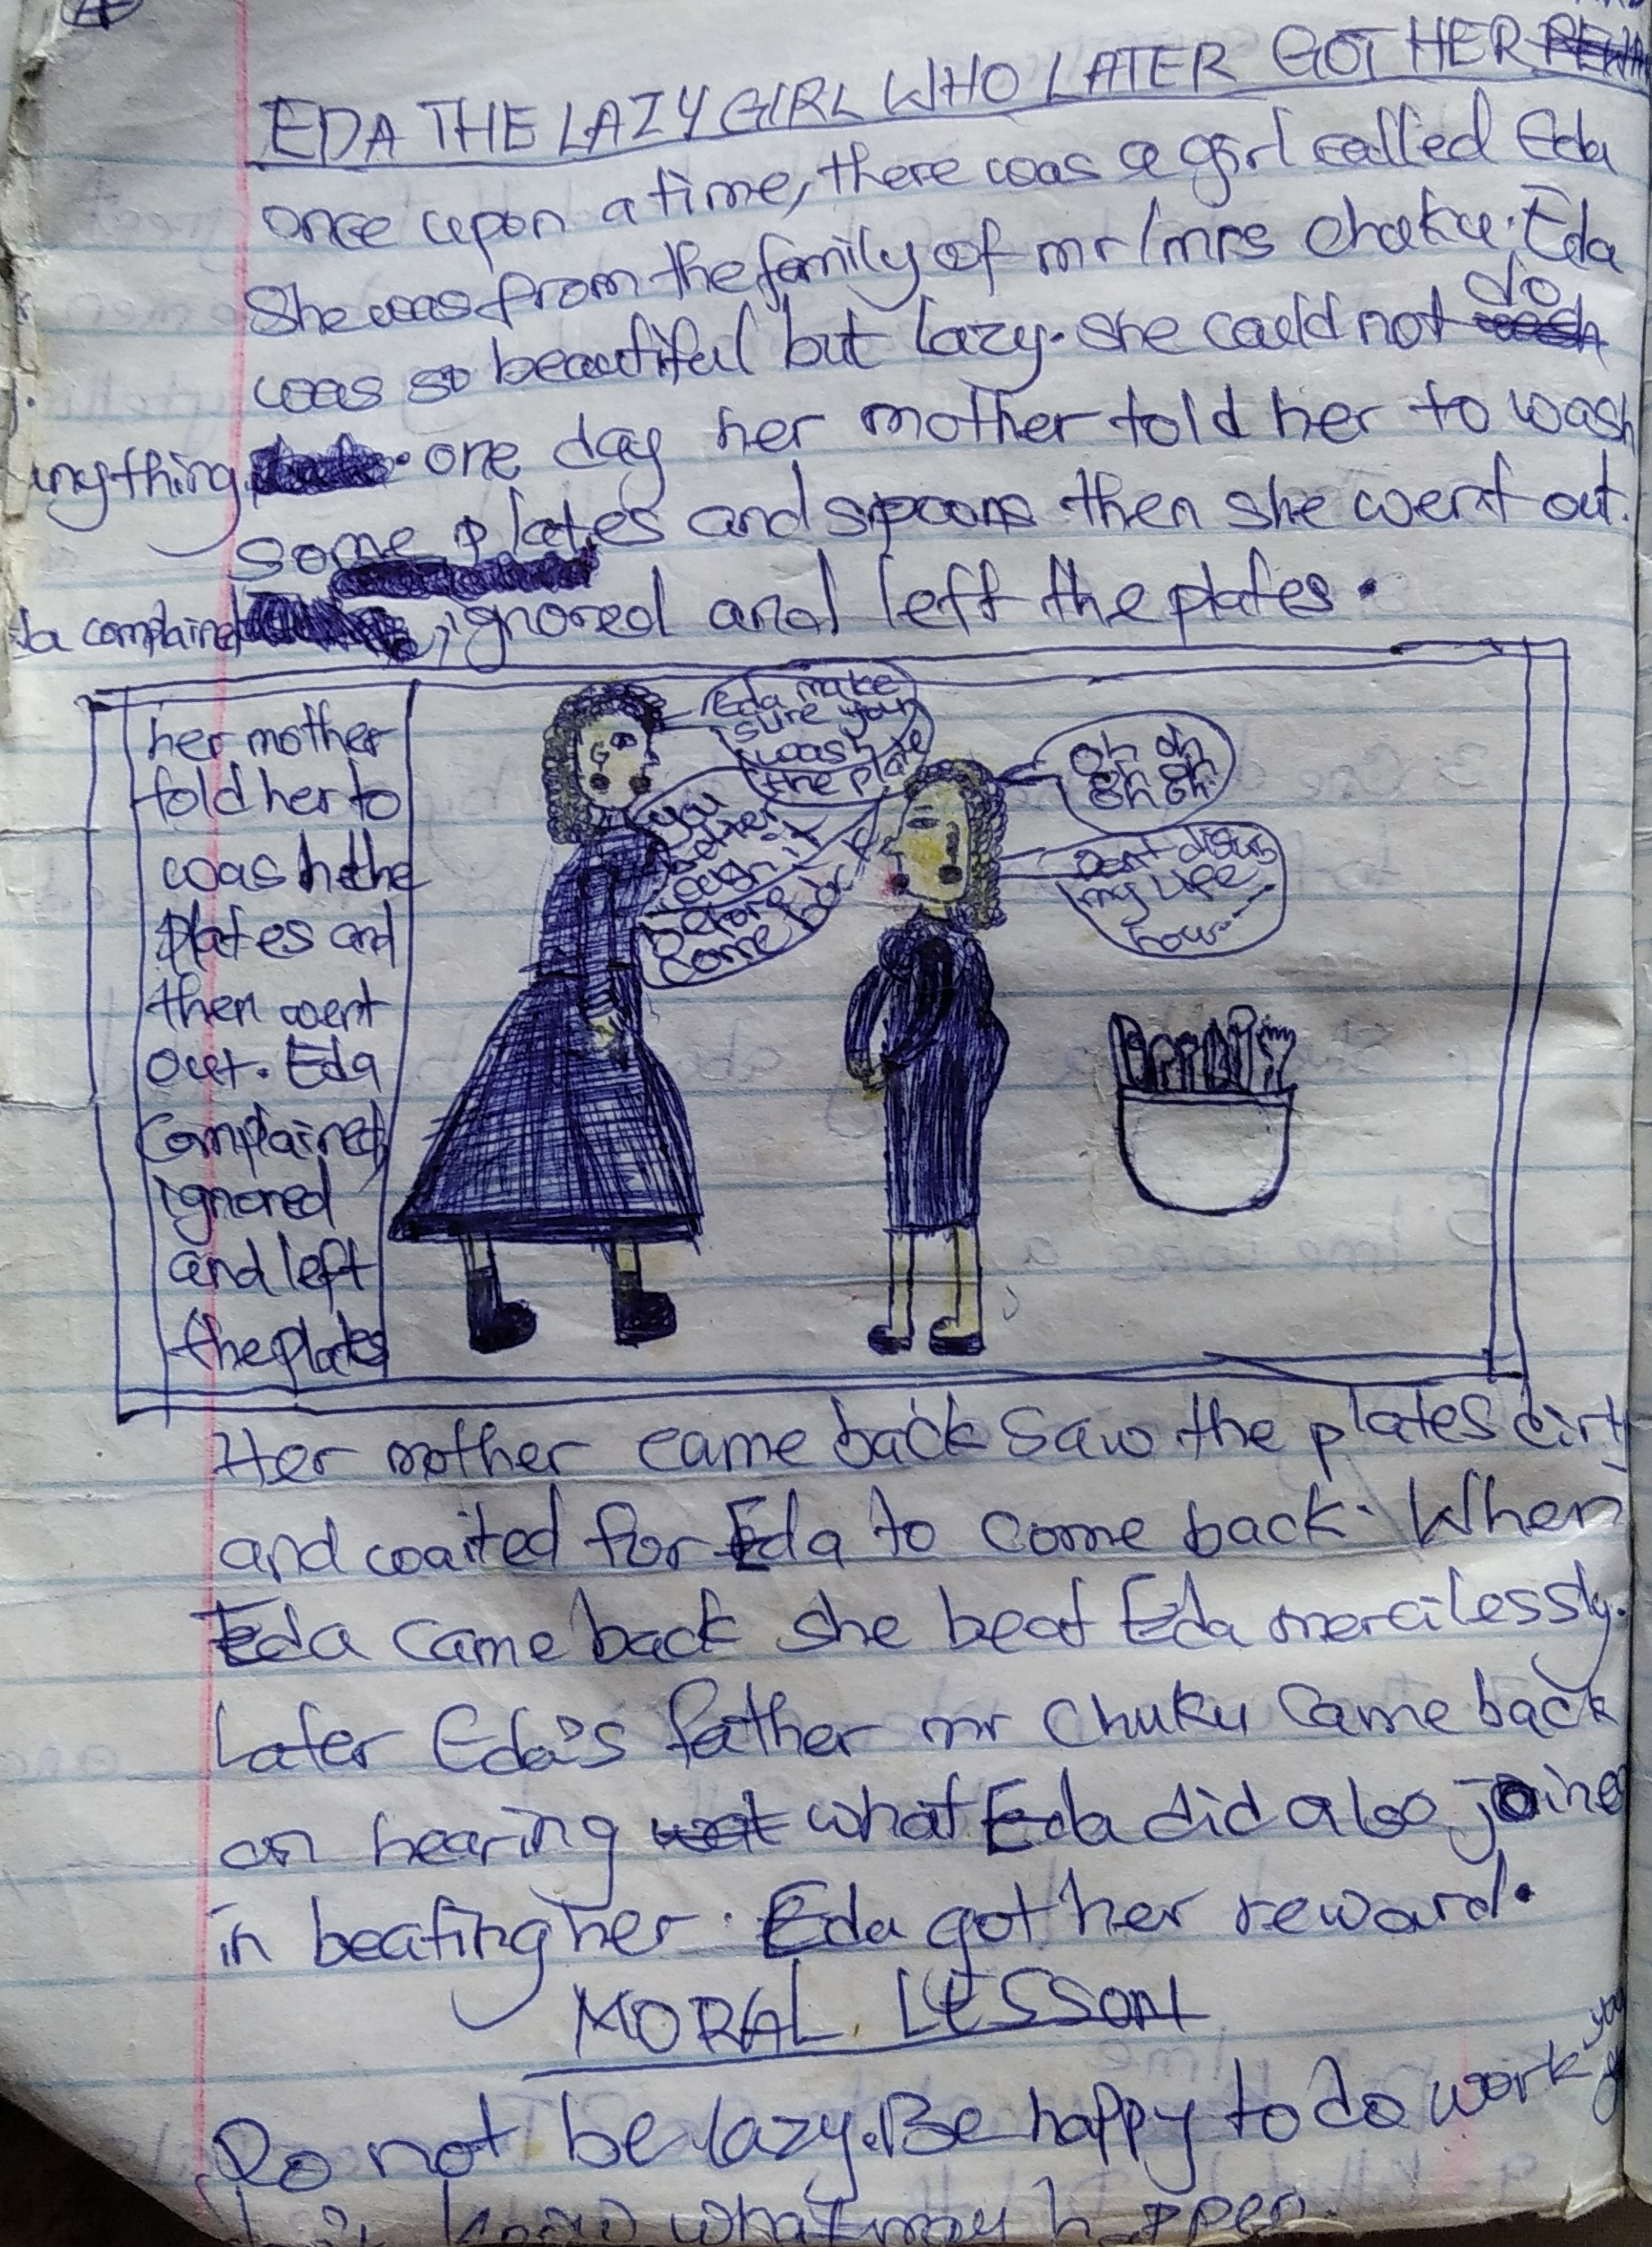 EDA THE LAZY GIRL WHO LATER GOT HER
once upon a time, there was a girl called Eda
She was from the family of mr/mrs chuku. Eda
was so beautiful but lazy. she could not do
anything. one day her mother told her to wash
some plates and spoons then she went out.
Eda complained, ignored and left the plates.
her mother
told her to
wash the
plates and
then went
out. Eda
complained,
ignored
and left
the plates
Eda make
sure you
wash
the plate
you
better
wash it
before
come
oh oh
oh oh
Don't
my life
now
Her mother came back saw the plates dirty
and waited for Eda to come back. When
Eda came back she beat Eda mercilessly.
Later Eda's father mr Chuku came back
on hearing what Eda did also joined
in beating her. Eda got her reward.
MORAL LESSON
Do not be lazy. Be happy to do work you
know what may happen.